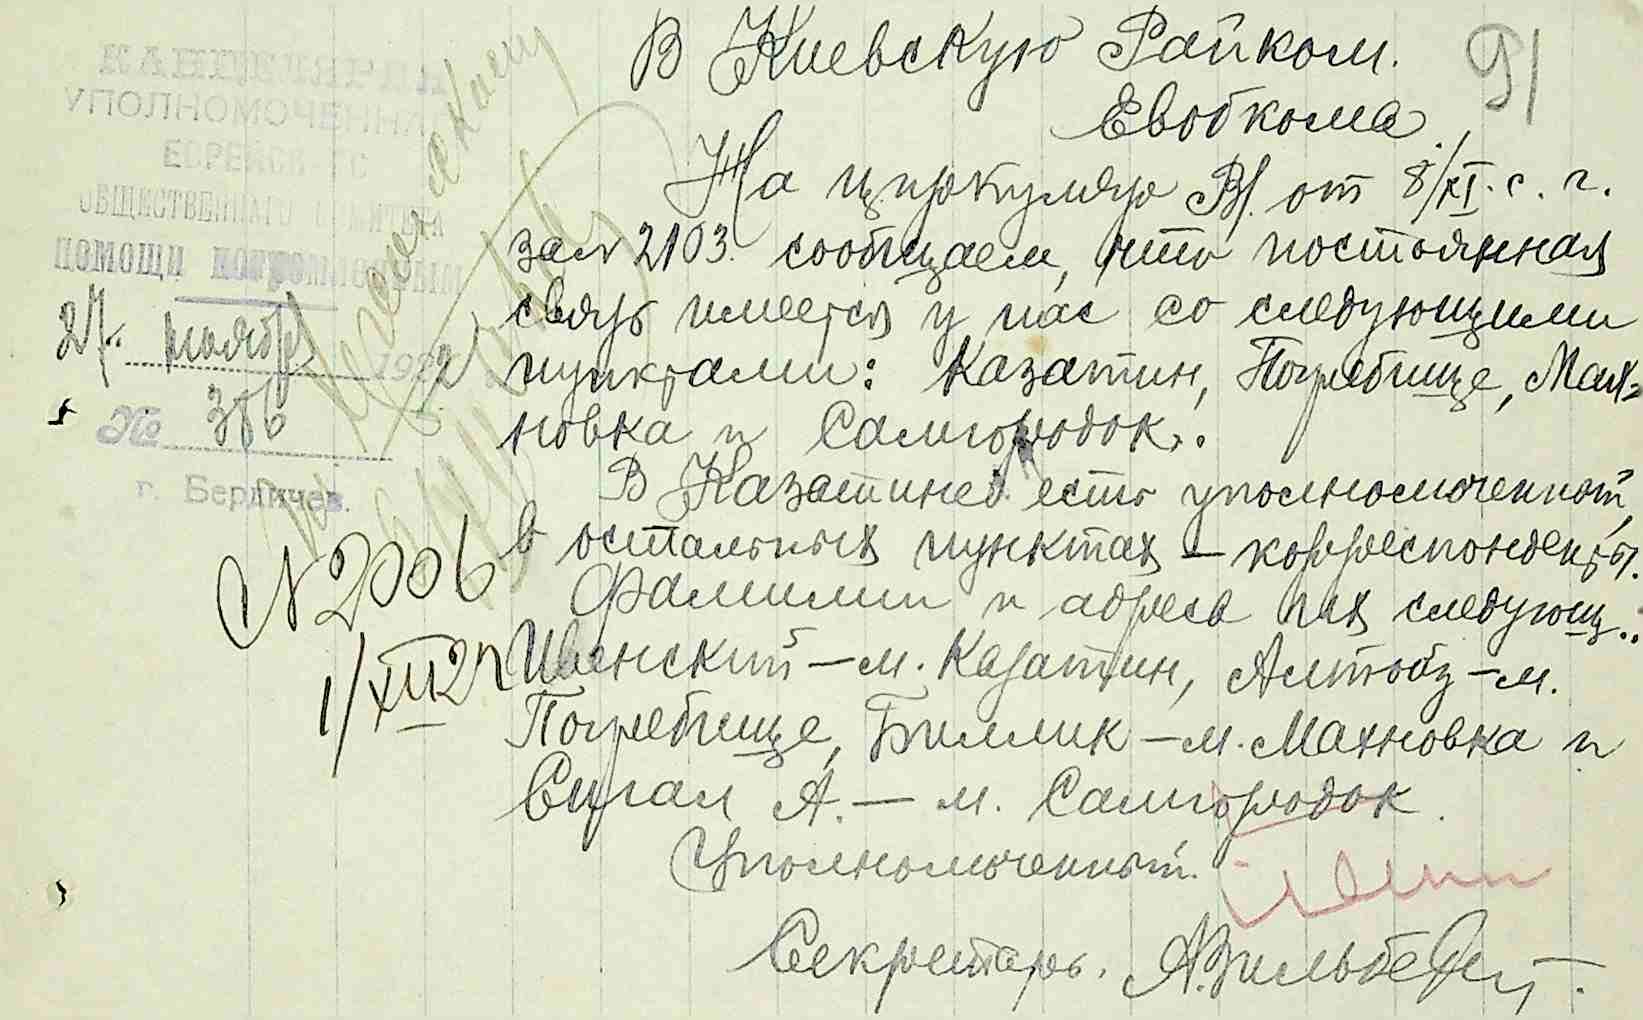 В Киевскую Райком.
Евобкома
91
КАНЦЕЛЯРИЯ
УПОЛНОМОЧЕННАГО
ЕВРЕЙСКАГО
ОБЩЕСТВЕННАГО КОМИТЕТА
ПОМОЩИ ПОГРОМЛЕННЫМ
27 ноября 1922
№ 386
г. Бердичев.
N 2006
1/XII 22
На циркуляр Вы. от 8/XI. с. г.
за N 2103. сообщаем, что постоянная
связь имеется у нас со следующими
пунктами: Казатин, Погребище, Мах-
новка и Самгородок.
В Казатине есть уполномоченный,
в остальных пунктах – корреспонденты.
Фамилии и адреса их следующ.:
– м. Казатин, – м.
Погребище, Биллик – м. Махновка и
Сигал А. – м. Самгородок.
Уполномоченный.
Секретарь. А. Зильберг